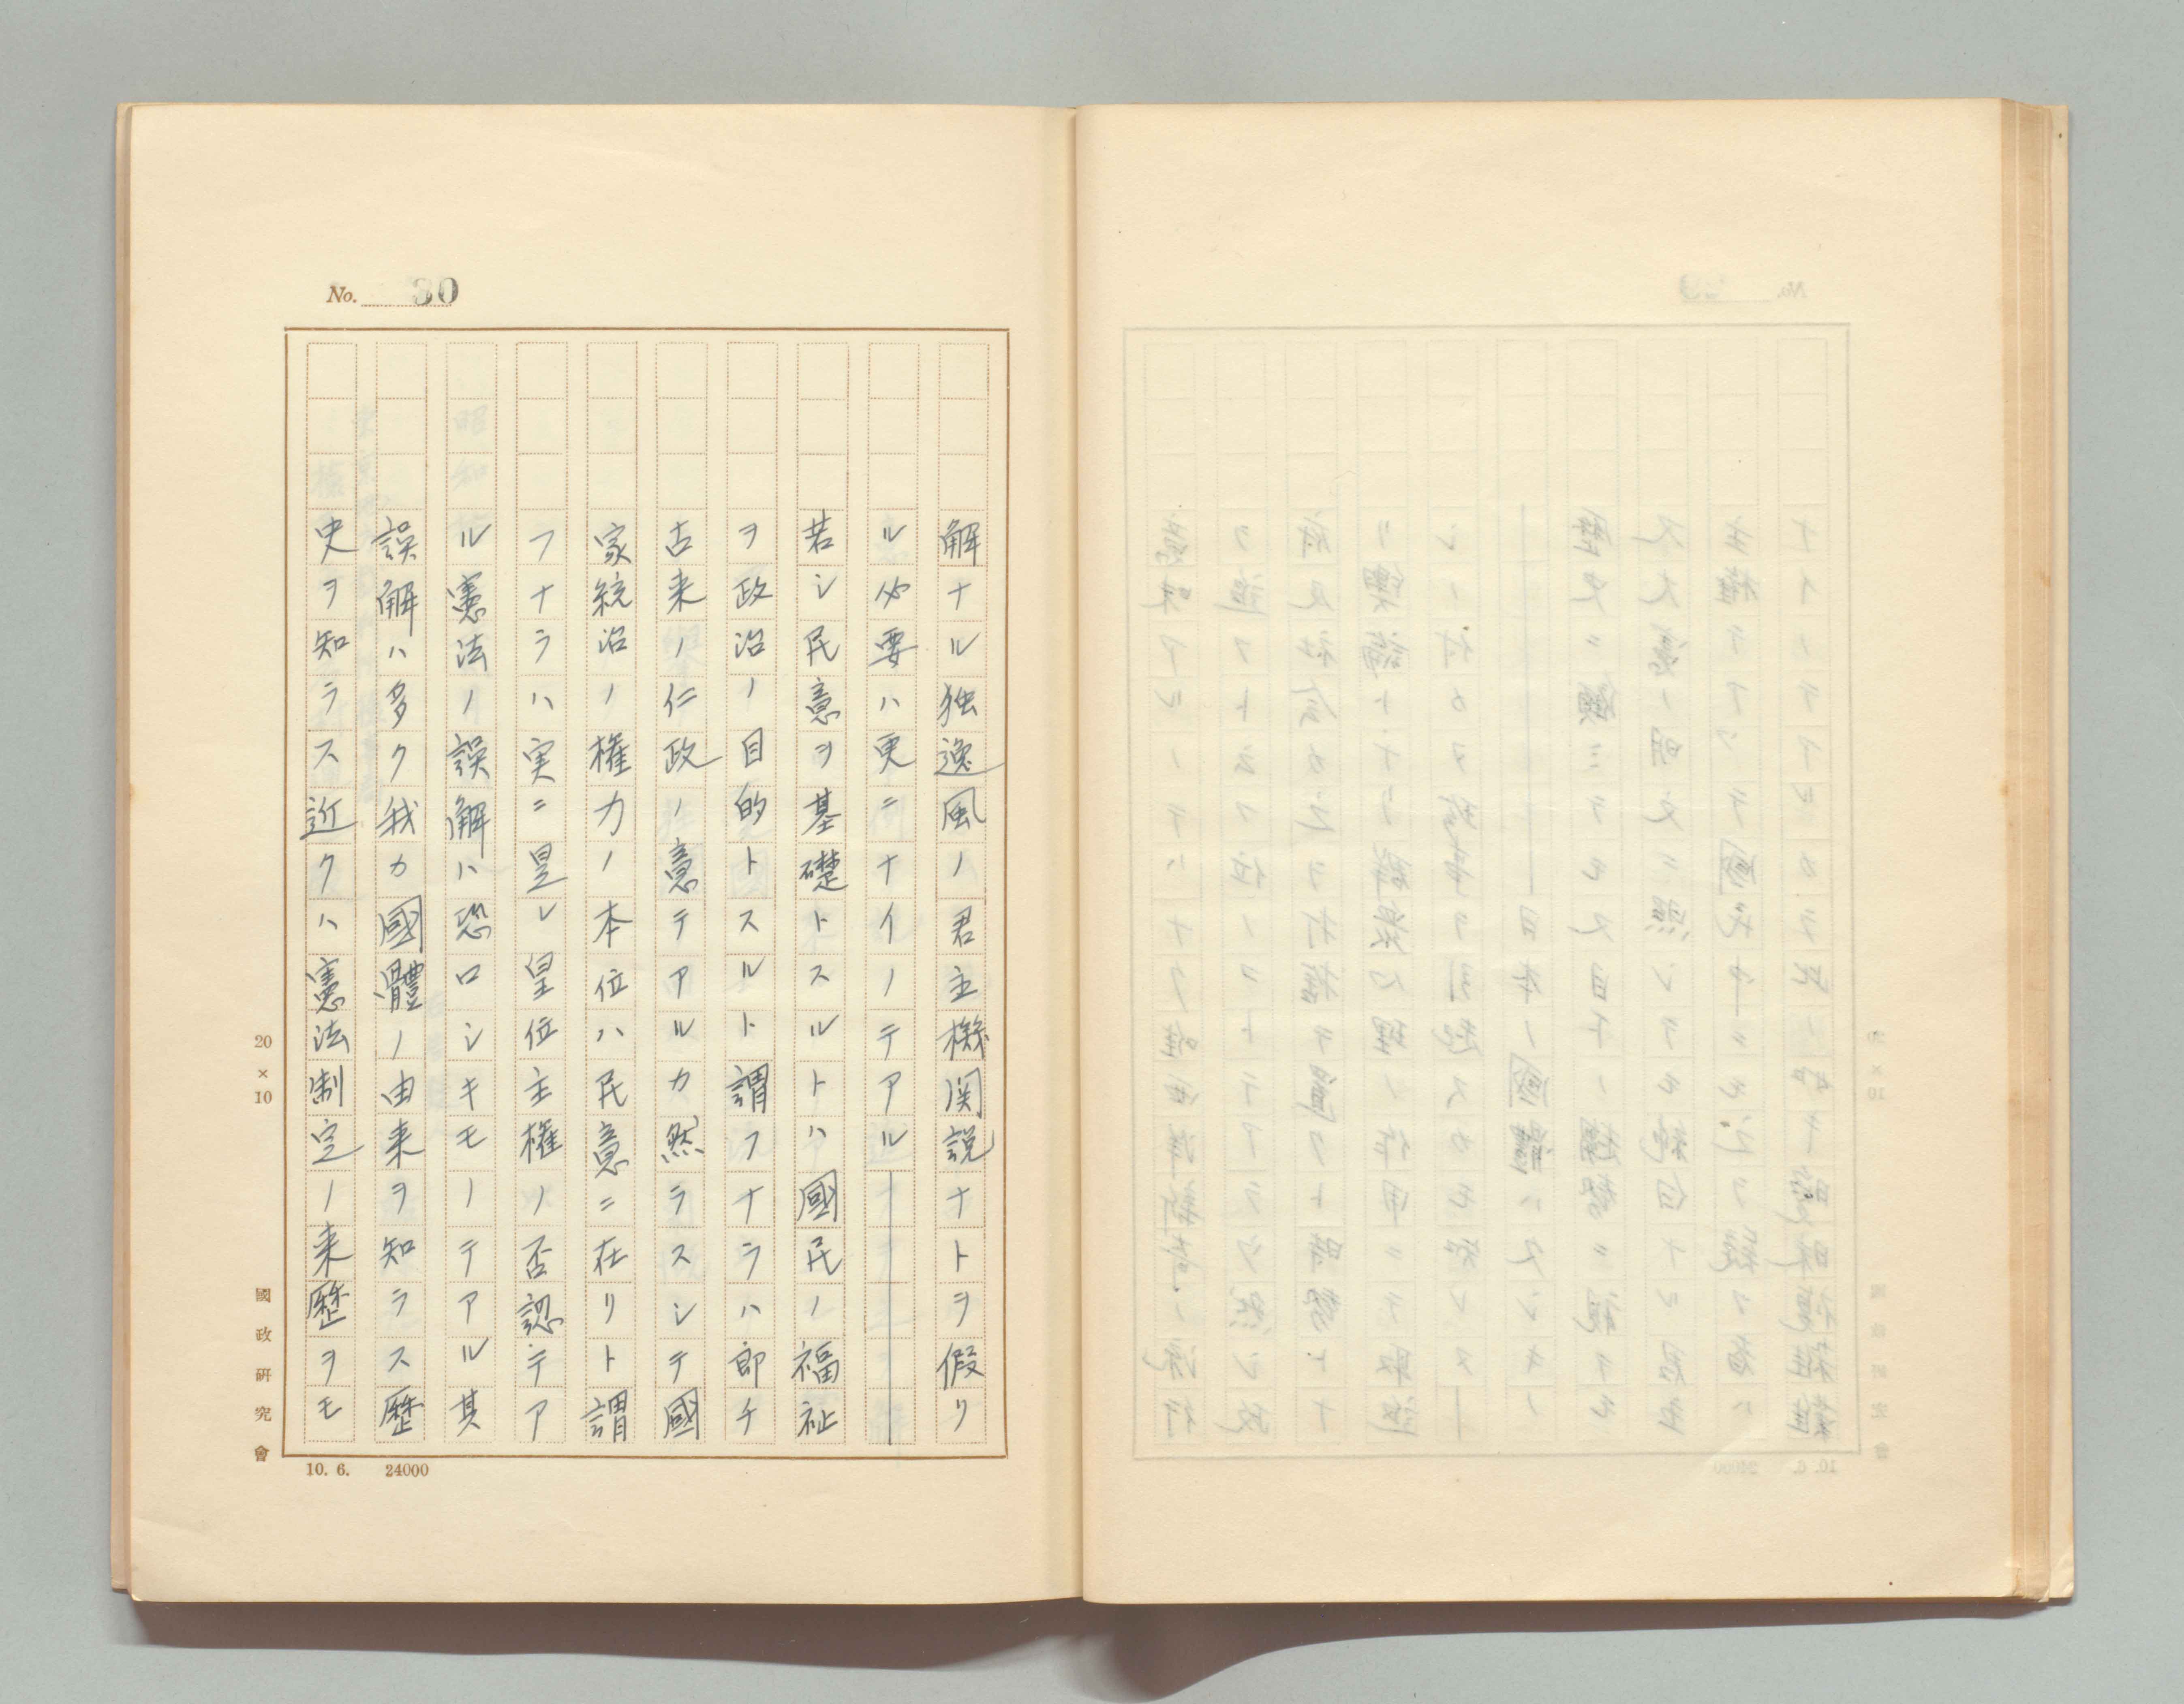 No. 30
解ナル独逸風ノ君主機関説ナトヲ假リ
ル必要ハ更ニナイノテアル
若シ民意ヲ基礎トスルトハ國民ノ福祉
ヲ政治ノ目的トスルト謂フナラハ即チ
古来ノ仁政ノ意テアルカ然ラスシテ國
家統治ノ権力ノ本位ハ民意ニ在リト謂
フナラハ実ニ是レ皇位主権ノ否認テア
ル憲法ノ誤解ハ恐ロシキモノテアル其
誤解ハ多ク我カ國體ノ由来ヲ知ラス歴
史ヲ知ラス近クハ憲法制定ノ来歴ヲモ
20×10
國政研究會
10. 6. 24000